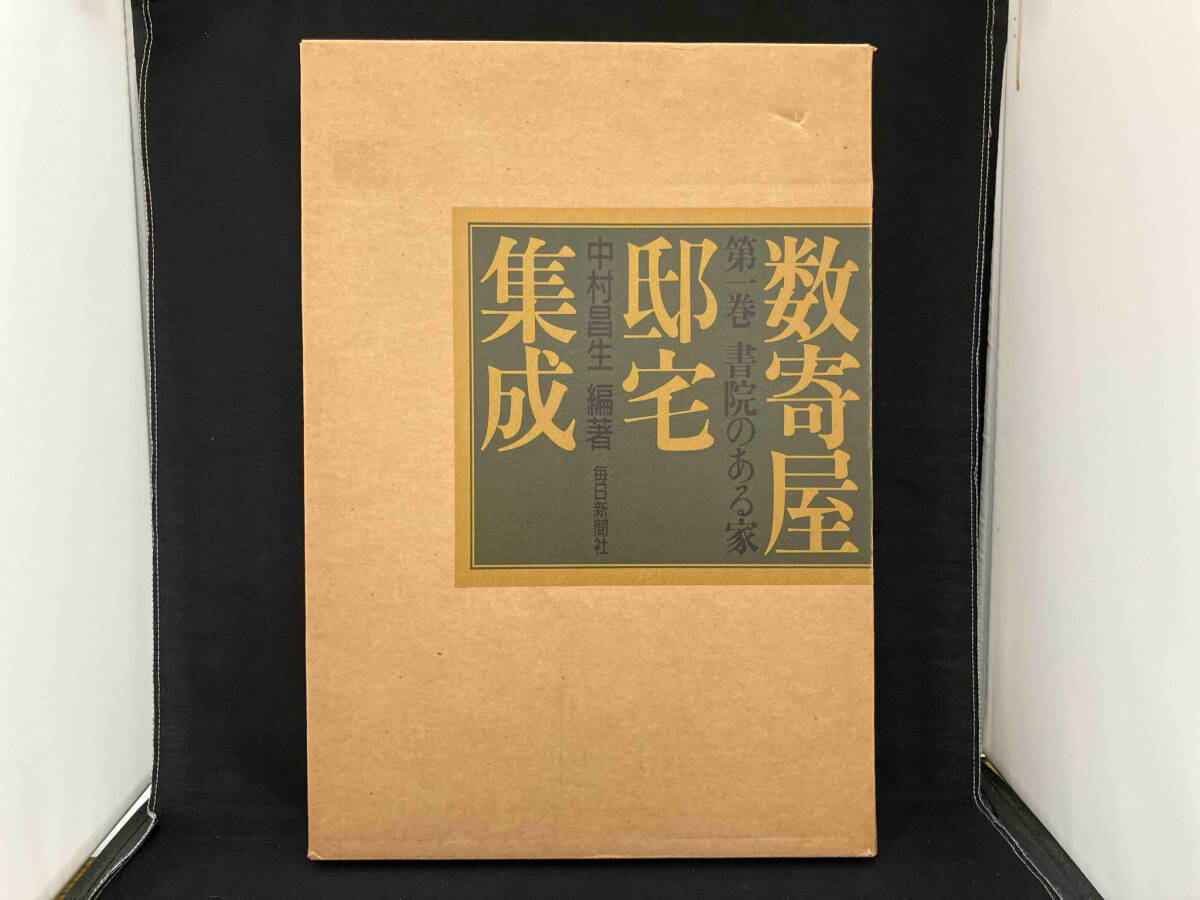 数寄屋
第一巻 書院のある家
邸宅
中村昌生 編著 毎日新聞社
集成